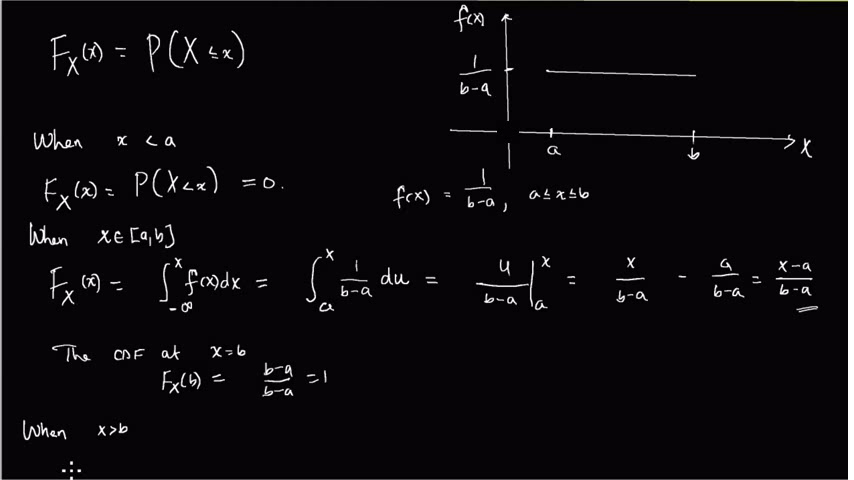 F_X(x) = P(X ≤ x)
f(x)
1/(b-a)
a
b
x
When x < a
F_X(x) = P(X < x) = 0.
f(x) = 1/(b-a), a ≤ x ≤ b
When x ∈ [a,b]
F_X(x) = ∫_{-∞}^{x} f(x)dx = ∫_{a}^{x} 1/(b-a) du = u/(b-a) |_{a}^{x} = x/(b-a) - a/(b-a) = (x-a)/(b-a)
The CDF at x=b
F_X(b) = (b-a)/(b-a) = 1
When x>b